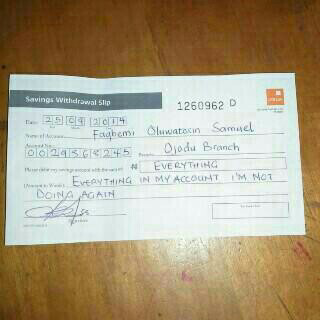 Savings Withdrawal Slip
1260962 D
Date: 25 04 2014
Name of Account: Fagbemi Oluwatosin Samuel
Account No.: 0029568245 Branch: Ojodu Branch
Please debit my savings account with the sum of # EVERYTHING
(Amount in Words) EVERYTHING IN MY ACCOUNT I'M NOT
DOING AGAIN
Signature